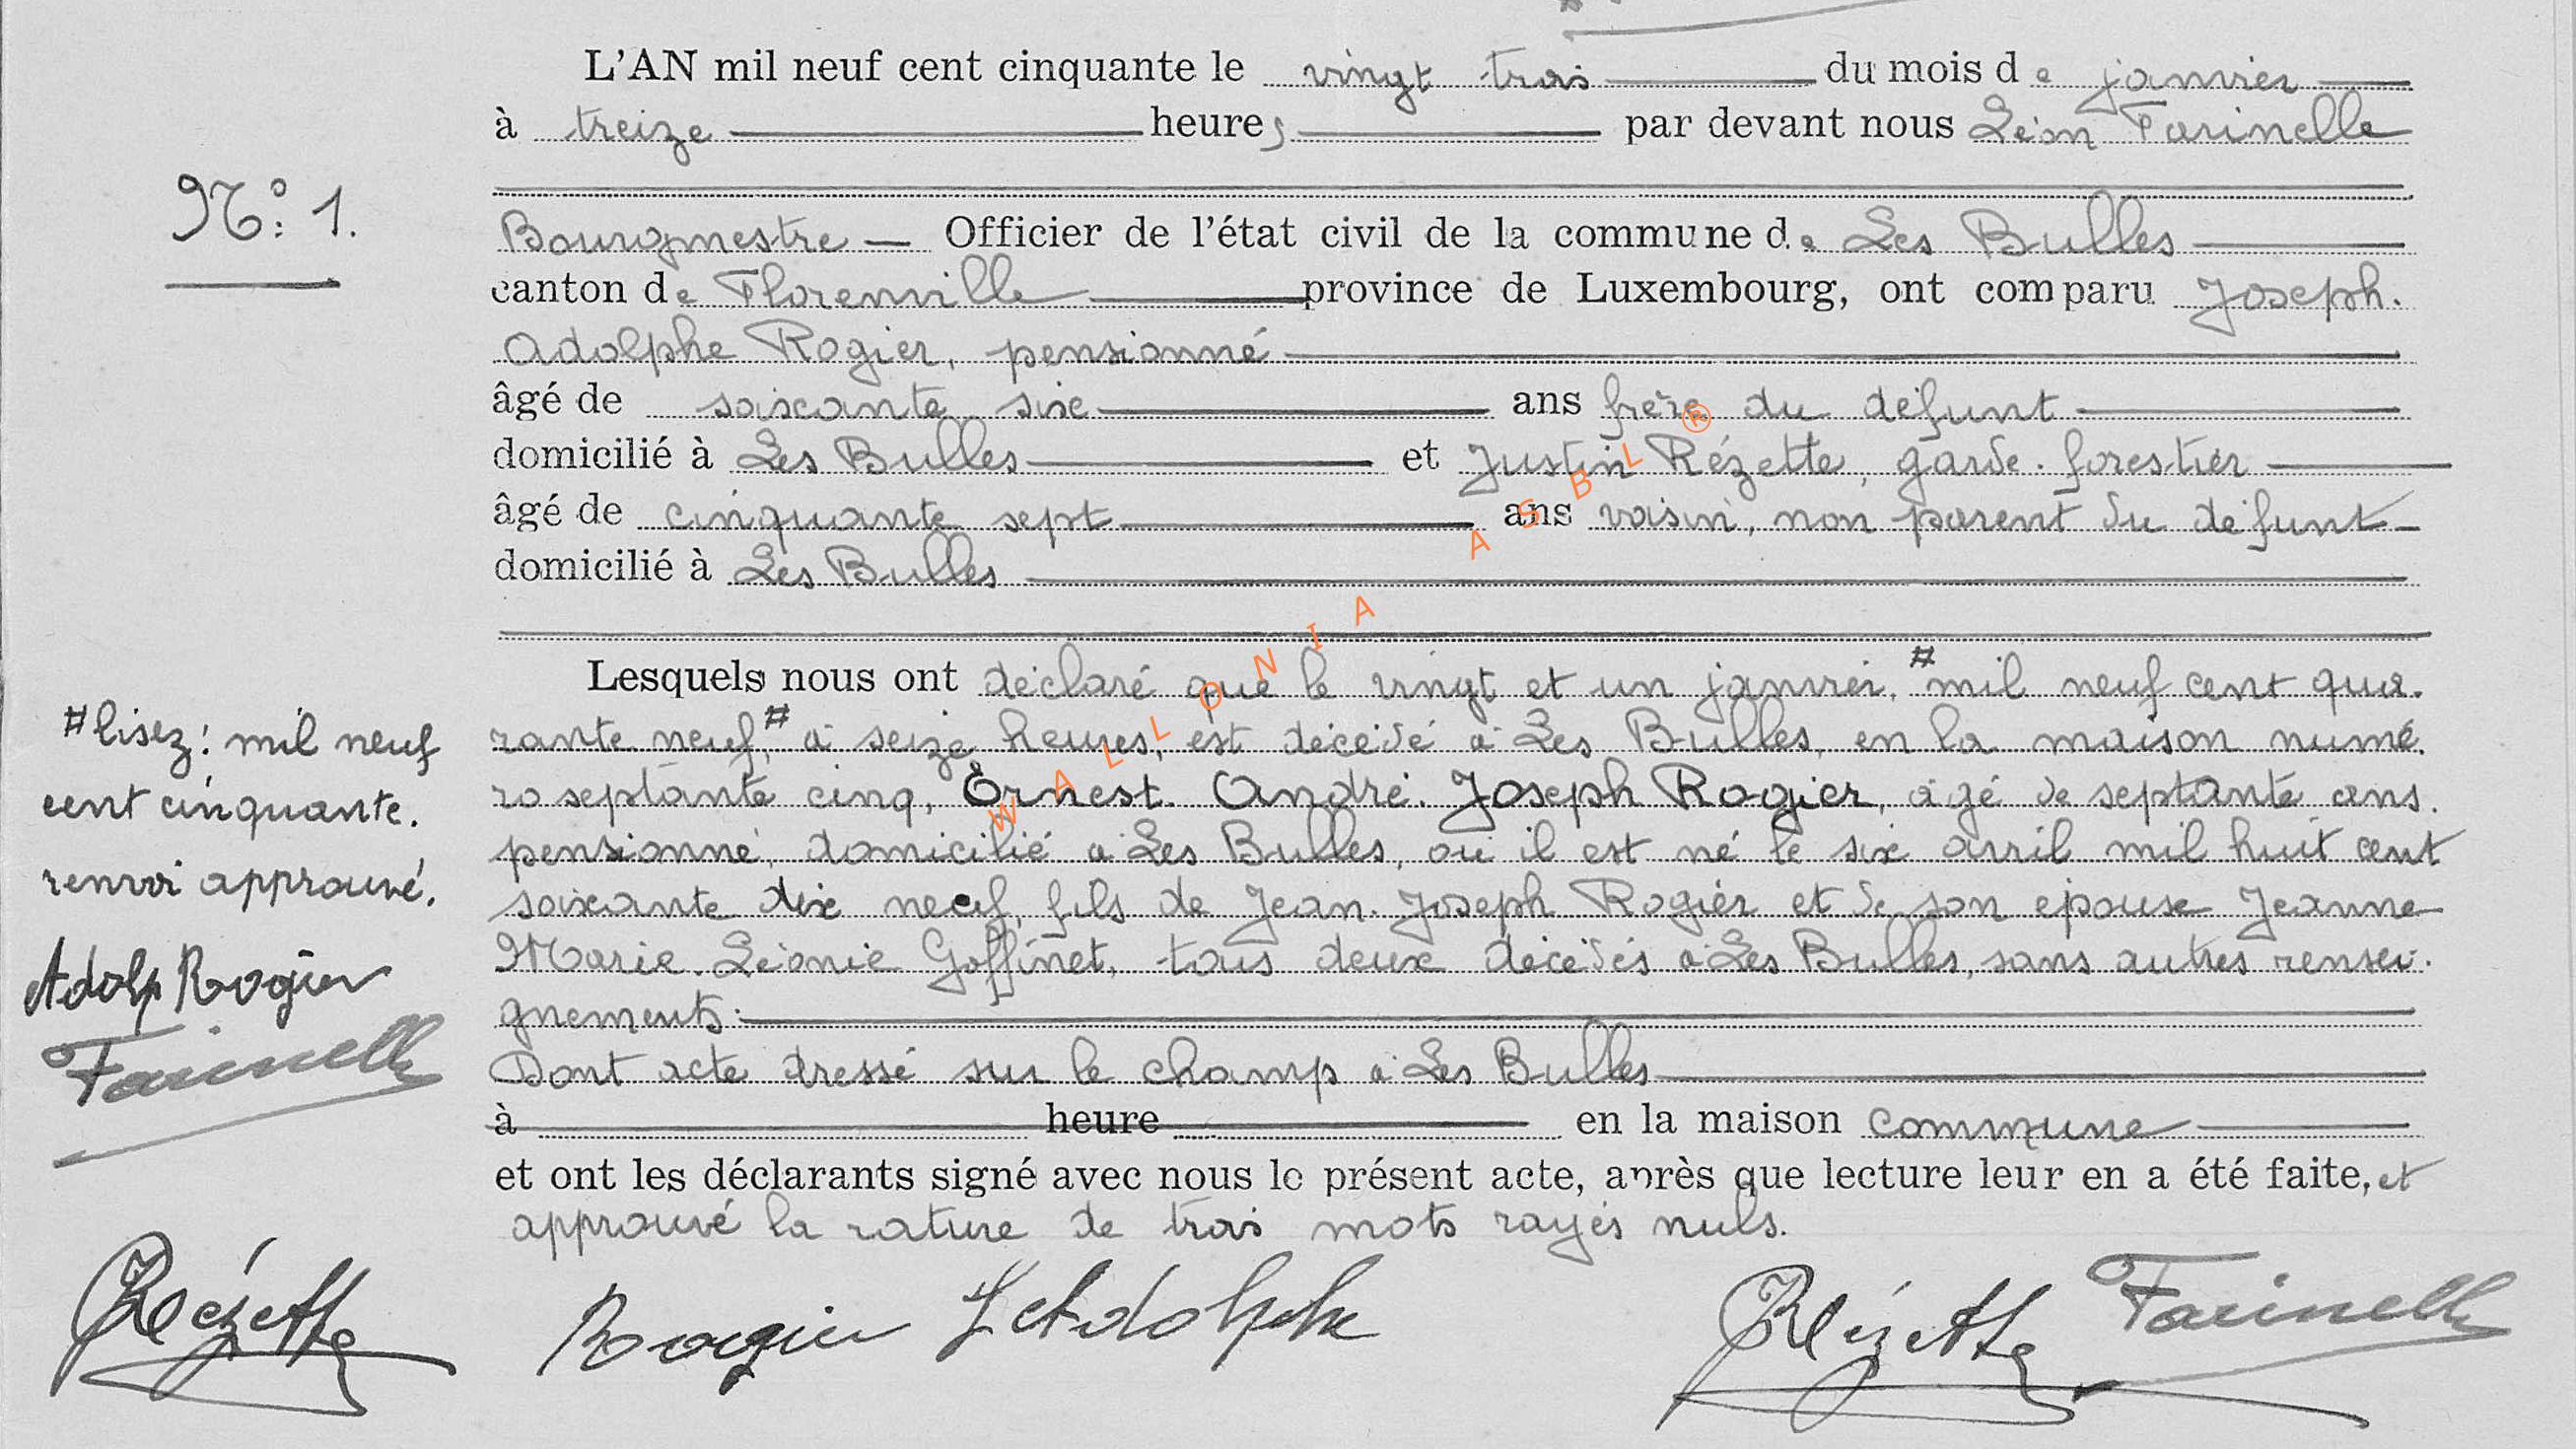 L'AN mil neuf cent cinquante le vingt trois du mois de janvier
à treize heures par devant nous Léon Farinelle
N°: 1.
Bourgmestre — Officier de l'état civil de la commune de Les Bulles
canton de Florenville province de Luxembourg, ont comparu Joseph.
Adolphe Rogier, pensionné
âgé de soixante six ans frère du défunt
domicilié à Les Bulles et Justin Rézette, garde-forestier
âgé de cinquante sept ans voisin, non parent du défunt
domicilié à Les Bulles
Lesquels nous ont déclaré que le vingt et un janvier, # mil neuf cent qua-
rante neuf, # à seize heures, est décédé à Les Bulles, en la maison numé-
ro septante cinq, Ernest. André. Joseph Rogier, âgé de septante ans.
pensionné, domicilié à Les Bulles, où il est né le six avril mil huit cent
soixante dix neuf, fils de Jean-Joseph Rogier et de son épouse Jeanne
Marie-Léonie Goffinet, tous deux décédés à Les Bulles, sans autres rensei-
gnements.
Dont acte dressé sur le champ à Les Bulles
à heure en la maison commune
et ont les déclarants signé avec nous le présent acte, après que lecture leur en a été faite, et
approuvé la rature de trois mots rayés nuls.
# lisez: mil neuf
cent cinquante.
renvoi approuvé.
Adolp Rogier
Farinelle
Rézette
Rogier J Adolphe
Rézette
Farinelle
WALLONIA ASBL ®